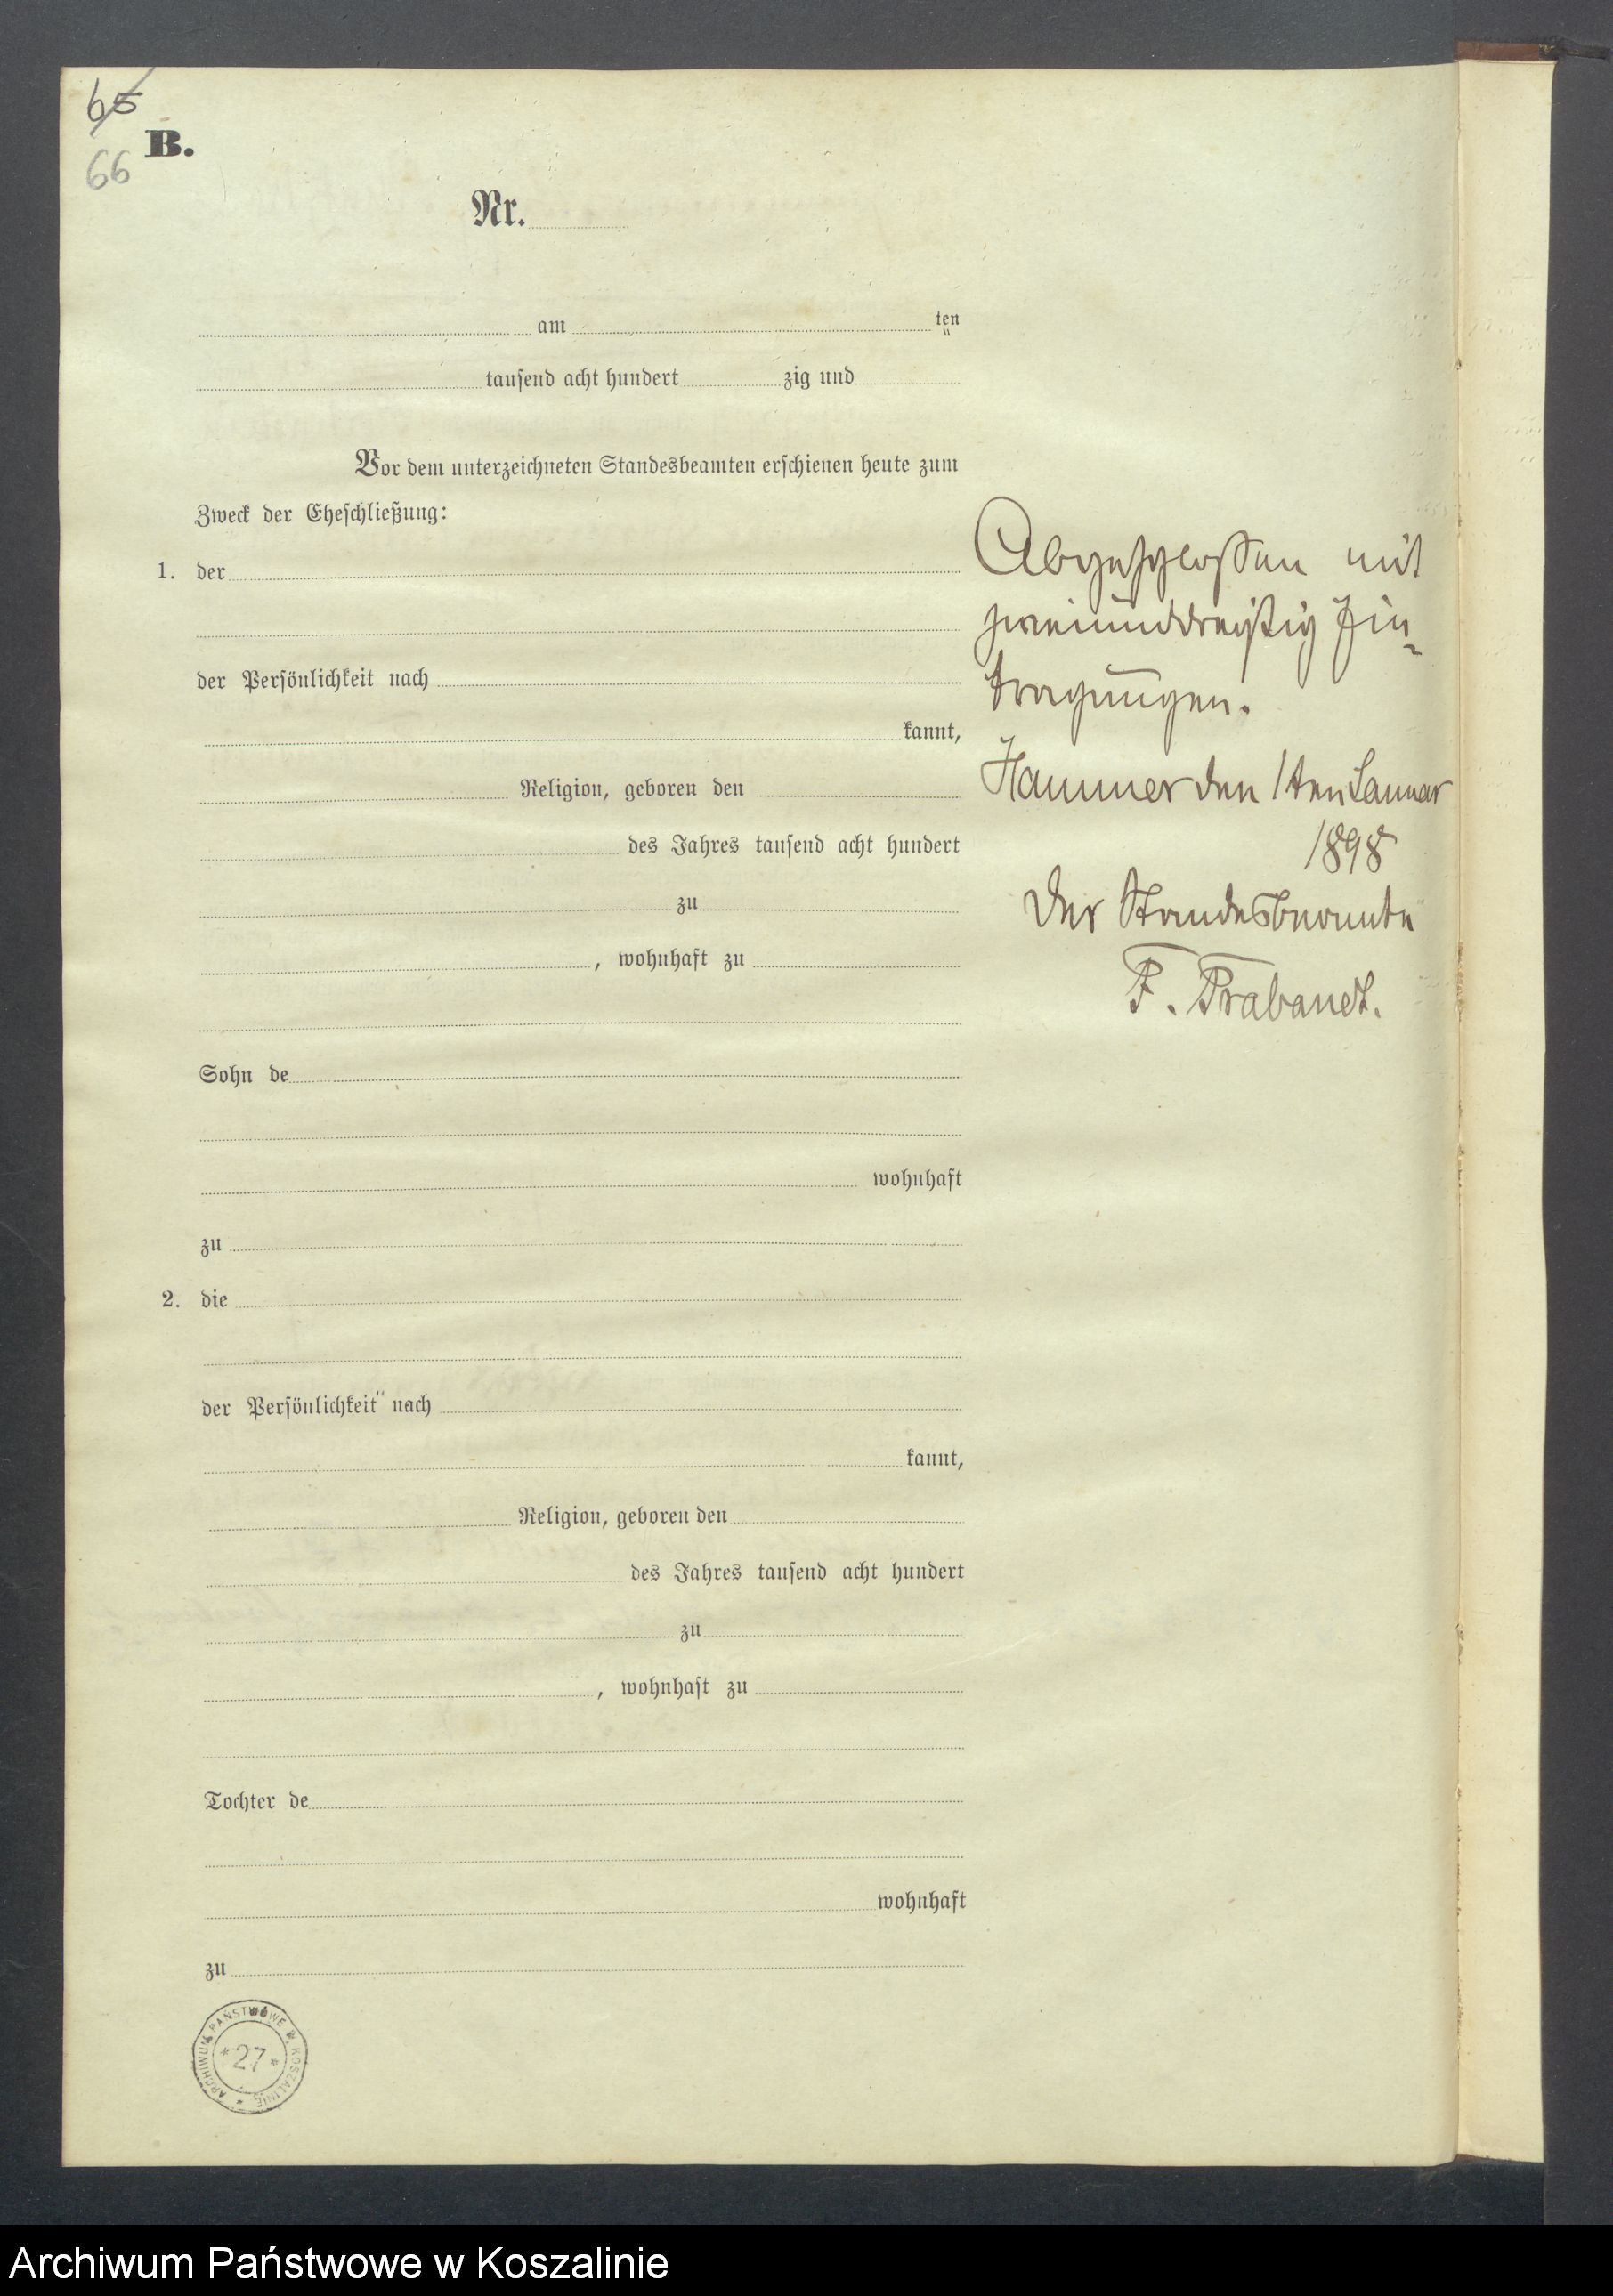 65
B.
66
Nr.
am ten
tausend acht hundert zig und
Vor dem unterzeichneten Standesbeamten erschienen heute zum
Zweck der Eheschließung:
1. der
der Persönlichkeit nach
kannt,
Religion, geboren den
des Jahres tausend acht hundert
zu
, wohnhaft zu
Sohn de
wohnhaft
zu
2. die
der Persönlichkeit nach
kannt,
Religion, geboren den
des Jahres tausend acht hundert
zu
, wohnhaft zu
Tochter de
wohnhaft
zu
Abgeschlossen mit
zweiunddreißig Ein-
tragungen.
Hammer den 1ten Januar
1898
Der Standesbeamte
F. Prabandt.
ARCHIWUM PAŃSTWOWE W KOSZALINIE
* 27 *
Archiwum Państwowe w Koszalinie